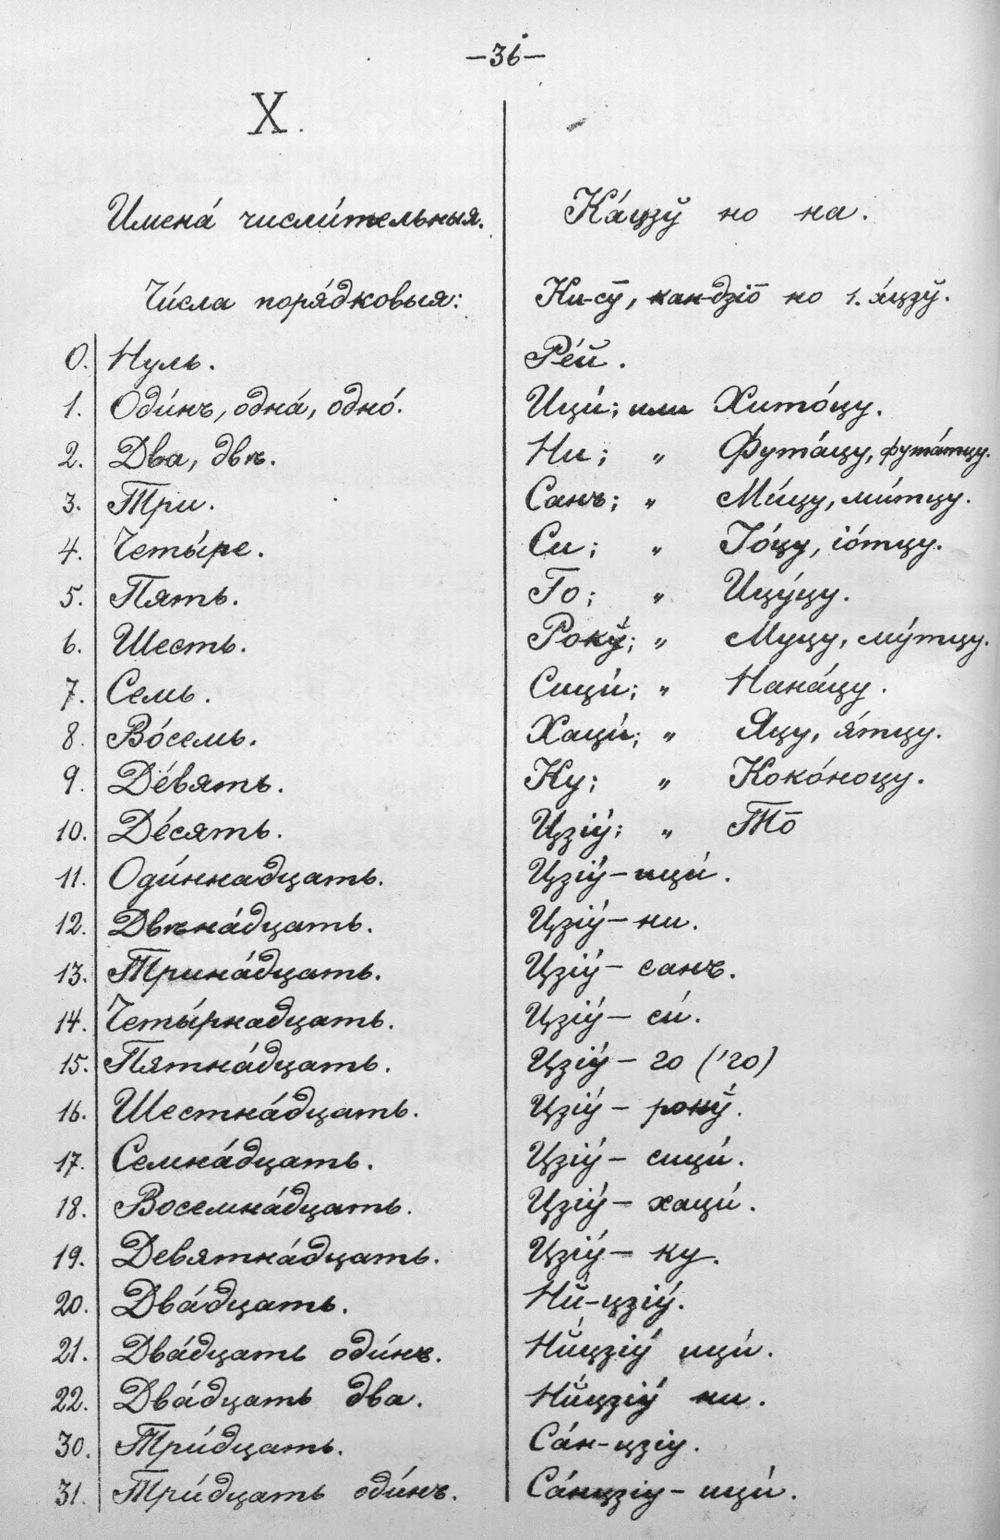 —36—
X.
Имена́ числи́тельныя. Ка́цзў но на.
Чи́сла поря́дковыя: Ки-сӯ, кан-дзіо̄ но 1. я́цзў.
0. Нуль. Ре́й.
1. Оди́нъ, одна́, одно́. Ици́; или Хито́цу.
2. Два, двѣ. Ни; „ Фута́цу, фута́тцу.
3. Три. Санъ; „ Ми́цу, ми́тцу.
4. Четы́ре. Си; „ Іо́цу, іо́тцу.
5. Пять. Го; „ Ицу́цу.
6. Шесть. Рокў; „ Муцу, му́тцу.
7. Семь. Сици́; „ Нана́цу.
8. Во́семь. Хаци́; „ Яцу, я́тцу.
9. Де́вять. Ку; „ Коко́ноцу.
10. Де́сять. Цзіу́; „ То̄
11. Оди́ннадцать. Цзіу́—ици́.
12. Двѣна́дцать. Цзіу́—ни.
13. Трина́дцать. Цзіу́— санъ.
14. Четы́рнадцать. Цзіу́— си́.
15. Пятна́дцать. Цзіу́— го (’го)
16. Шестна́дцать. Цзіу́— рокў.
17. Семна́дцать. Цзіу́— сици́.
18. Восемна́дцать. Цзіу́— хаци́.
19. Девятна́дцать. Цзіу́— ку.
20. Два́дцать. Ни́-цзіу́.
21. Два́дцать оди́нъ. Ни́цзіу́ ици́.
22. Два́дцать два. Ни́цзіу́ ни.
30. Три́дцать. Са́н-цзіу.
31. Три́дцать оди́нъ. Са́нцзіу— ици́.